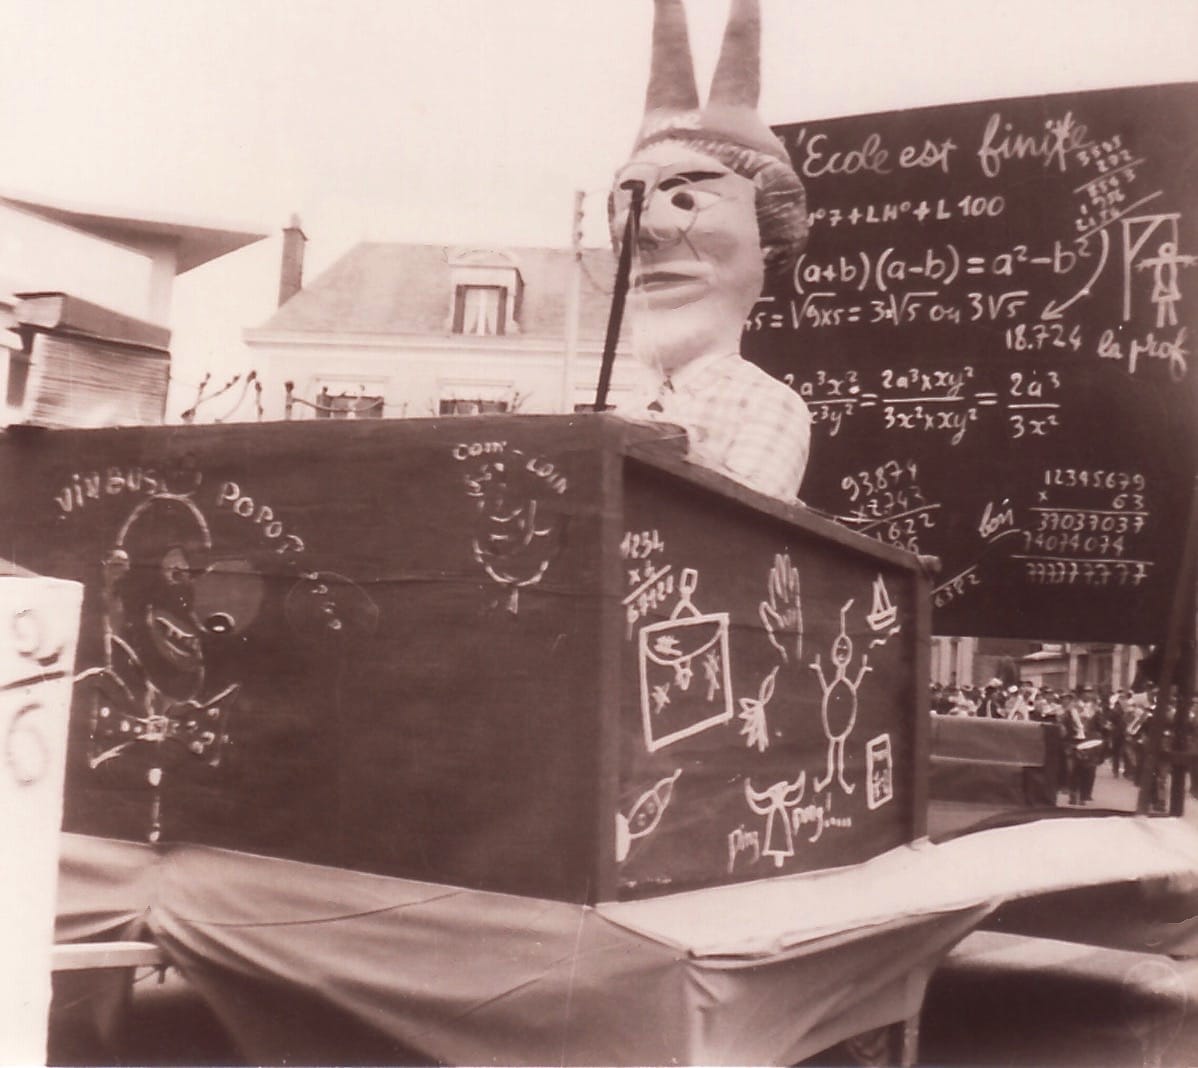 l'Ecole est finite
3545
202
N°7 + LH° + L 100
(a+b)(a-b) = a² - b²
45 = √9x5 = 3x√5 ou 3√5
18.724
la prof
2a³x²/x³y² = 2a³xxy²/3x²xxy² = 2a³/3x²
93.874
x2.743
1622
bon
12345679
x 63
37037037
74074074
777777777
âne
VIRBUS POPOF
COM-LOIN
1234
ping pong!.....
2
6